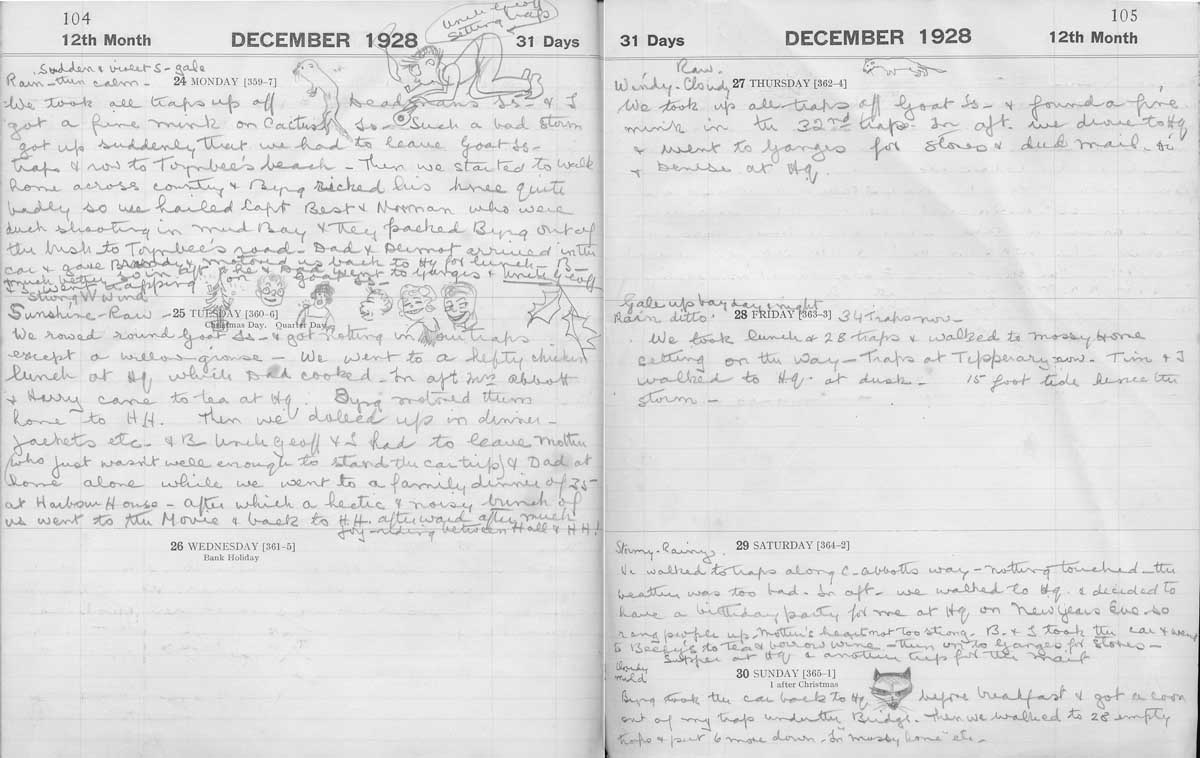 104
12th Month
DECEMBER 1928
31 Days
Uncle Geoff
setting traps
Sudden & violent S- gale
Rain- then calm-
24 MONDAY [359-7]
We took all traps up off Deadman's Is- & I
got a fine mink on Cactus Is- Such a bad storm
got up suddenly that we had to leave Goat Is-
traps & row to Toynbee's beach - Then we started to walk
home across country & Byng ricked his knee quite
badly so we hailed Capt Best & Norman who were
duck shooting in mud Bay & they packed Byng out of
the bush to Toynbee's road- Dad & Dermot arrived in the
car & gave Brandy & motored us back to Hq for lunch- B-
much better in aft he & Dad went to Ganges & Uncle Geoff
went trapping for
Strong W Wind
Sunshine- Raw -
25 TUESDAY [360-6]
Christmas Day. Quarter Day
We rowed round Goat Is- & got nothing in our traps
except a willow grouse - We went to a hefty chicken
lunch at Hq while Dad cooked- In aft Mrs Abbott
& Harry came to tea at Hq. Byng motored them
home to H.H. Then we dolled up in dinner-
jackets etc- & B Uncle Geoff & I had to leave Mother
(who just wasn't well enough to stand the car trip) & Dad at
home alone while we went to a family dinner of 25-
at Harbour House - after which a hectic & noisy bunch of
us went to the Movie & back to H.H. afterward after much
joy-riding between Hall & HH!
26 WEDNESDAY [361-5]
Bank Holiday
105
31 Days
DECEMBER 1928
12th Month
Raw.
Windy- Cloudy
27 THURSDAY [362-4]
We took up all traps off Goat Is- & found a fine
mink in the 32nd trap- In aft. we drove to Hq
& went to Ganges for stores & duck mail. Di
& Denise at Hq.
Gale up bay day & night
Rain ditto.
28 FRIDAY [363-3]
34 traps now-
We took lunch & 28 traps & walked to mossy Home
setting on the way- Traps at Tipperary now- Tim & I
walked to Hq- at dusk- 15 foot tide hence the
storm-
Stormy- Rainy.
29 SATURDAY [364-2]
We walked to traps along C- Abbotts way- nothing touched- the
weather was too bad. In aft- we walked to Hq. & decided to
have a birthday party for me at Hq on New Years Eve- so
rang people up. Mother's heart not too strong. B. & I took the car & went
to Beeby's to tea & borrow wine - then on to Ganges for Stores -
Supper at Hq & another trip for the mail
Cloudy
mild
30 SUNDAY [365-1]
1 after Christmas
Byng took the car back to Hq before breakfast & got a coon
out of my trap under the Bridge. Then we walked to 28 empty
traps & put 6 more down- In "mossy home" etc-